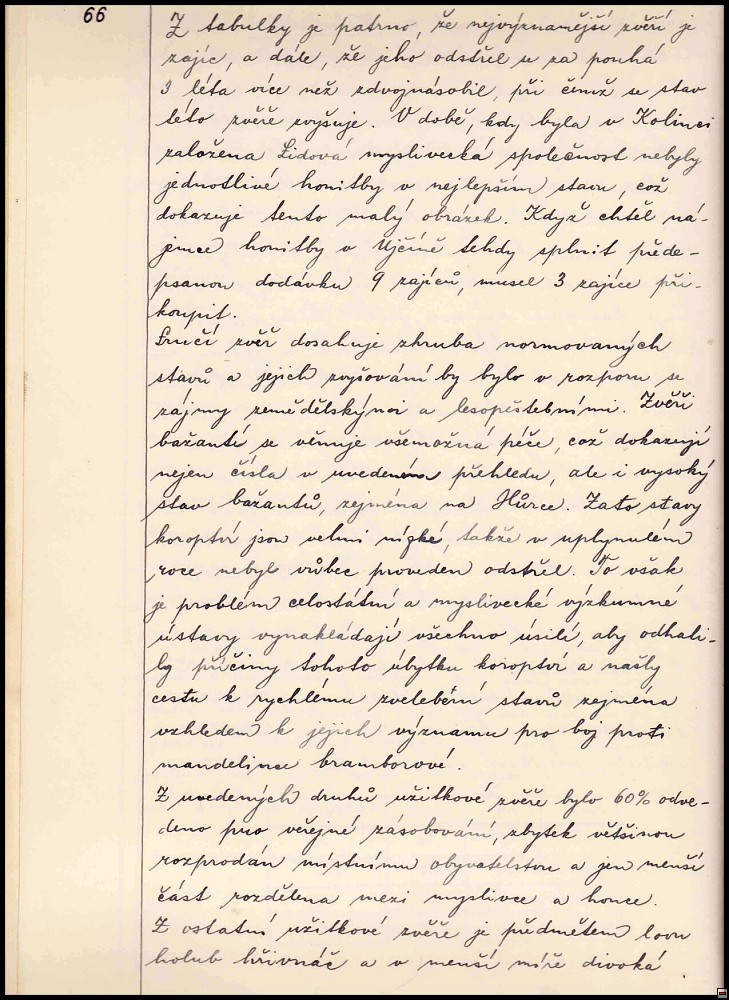 66
Z tabulky je patrno, že nejvýznamější zvěří je
zajíc, a dále, že jeho odstřel se za pouhá
3 léta více než zdvojnásobil, při čemž se stav
této zvěře zvyšuje. V době, kdy byla v Kolinci
založena Lidová myslivecká společnost nebyly
jednotlivé honitby v nejlepším stavu, což
dokazuje tento malý obrázek. Když chtěl ná-
jemce honitby v Ujčíně tehdy splnit přede-
psanou dodávku 9 zajíců, musel 3 zajíce při-
koupit.
Srnčí zvěř dosahuje zhruba normovaných
stavů a jejich zvyšování by bylo v rozporu se
zájmy zemědělskými a lesopěstebními. Zvěři
bažantí se věnuje všemožná péče, což dokazují
nejen čísla v uvedeném přehledu, ale i vysoký
stav bažantů, zejména na Hůrce. Zato stavy
koroptví jsou velmi nízké, takže v uplynulém
roce nebyl vůbec proveden odstřel. To však
je problém celostátní a myslivecké výzkumné
ústavy vynakládají všechno úsilí, aby odhali-
ly příčiny tohoto úbytku koroptví a našly
cestu k rychlému zvelebění stavů zejména
vzhledem k jejich významu pro boj proti
mandelince bramborové.
Z uvedených druhů užitkové zvěře bylo 60% odve-
deno pro veřejné zásobování, zbytek většinou
rozprodán místnímu obyvatelstvu a jen menší
část rozdělena mezi myslivce a honce.
Z ostatní užitkové zvěře je předmětem lovu
holub hřivnáč a v menší míře divoká